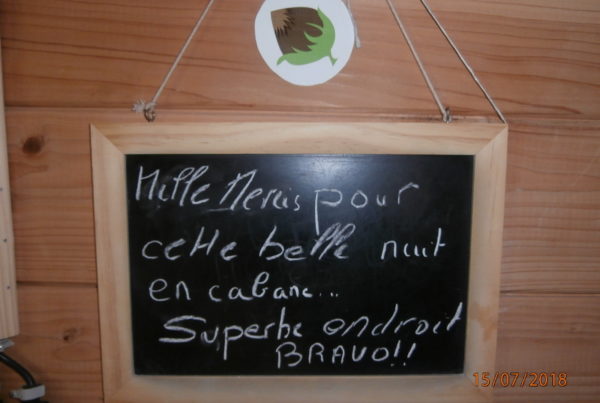 Mille Mercis pour
cette belle nuit
en cabane...
Superbe endroit
BRAVO!!
15/07/2018